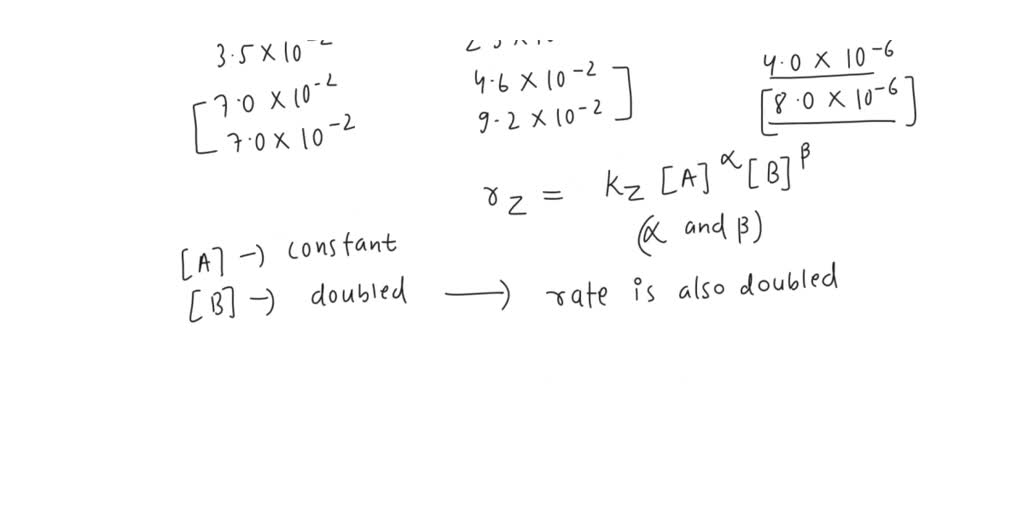 3.5 X 10
7.0 X 10-2 4.6 X 10-2 4.0 X 10-6
7.0 X 10-2 9.2 X 10-2 8.0 X 10-6
rZ = KZ [A]α [B]β
(α and β)
[A] → constant
[B] → doubled → rate is also doubled